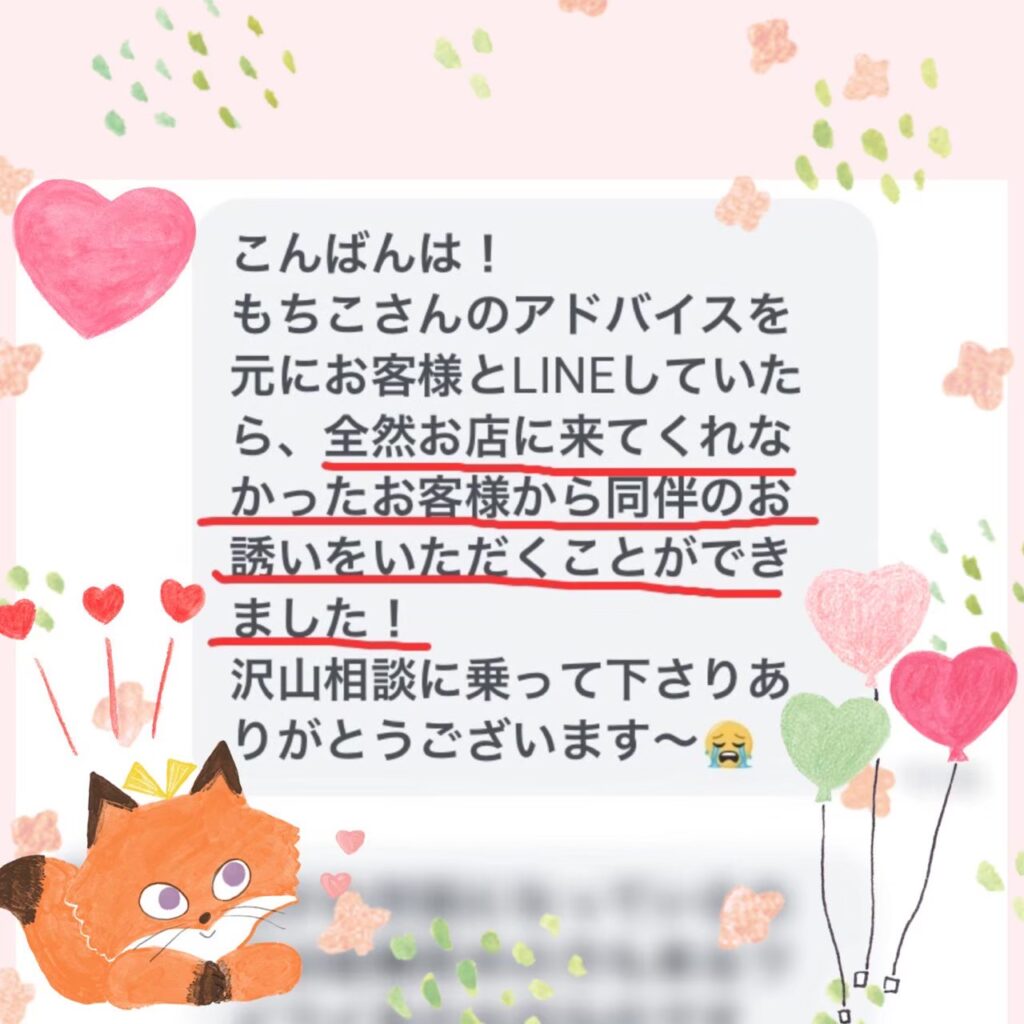 こんばんは！
もちこさんのアドバイスを
元にお客様とLINEしていた
ら、全然お店に来てくれな
かったお客様から同伴のお
誘いをいただくことができ
ました！
沢山相談に乗って下さりあ
りがとうございます〜😭